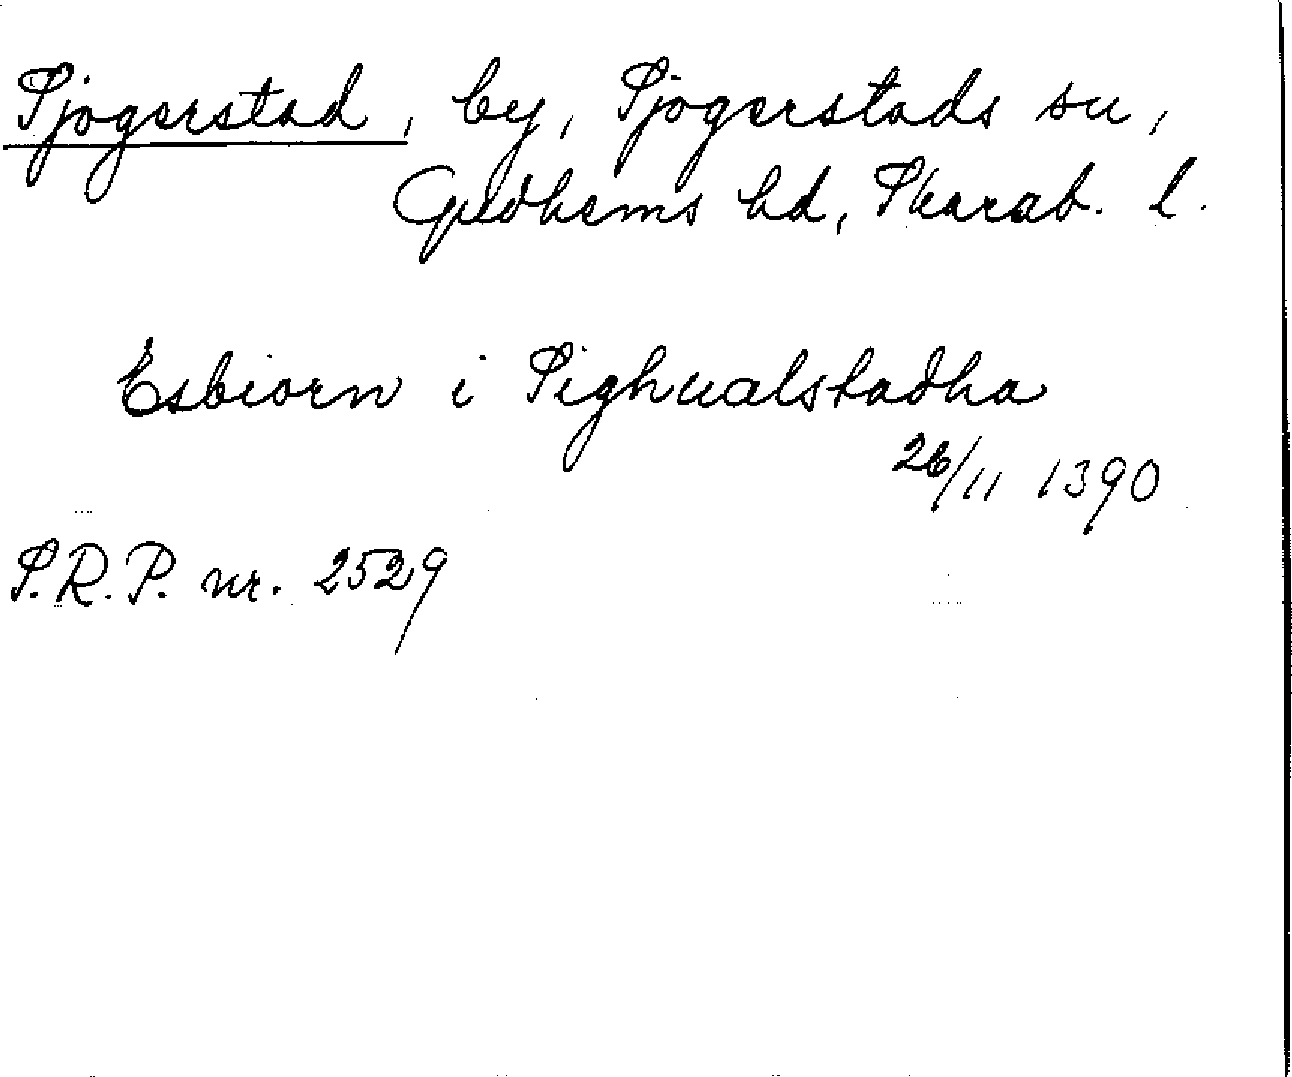 Sjogerstad, by, Sjogerstads sn,
Gudhems hd, Skarab. l.
Esbiorn i Sighualstadha
26/11 1390
S.R.P. nr. 2529